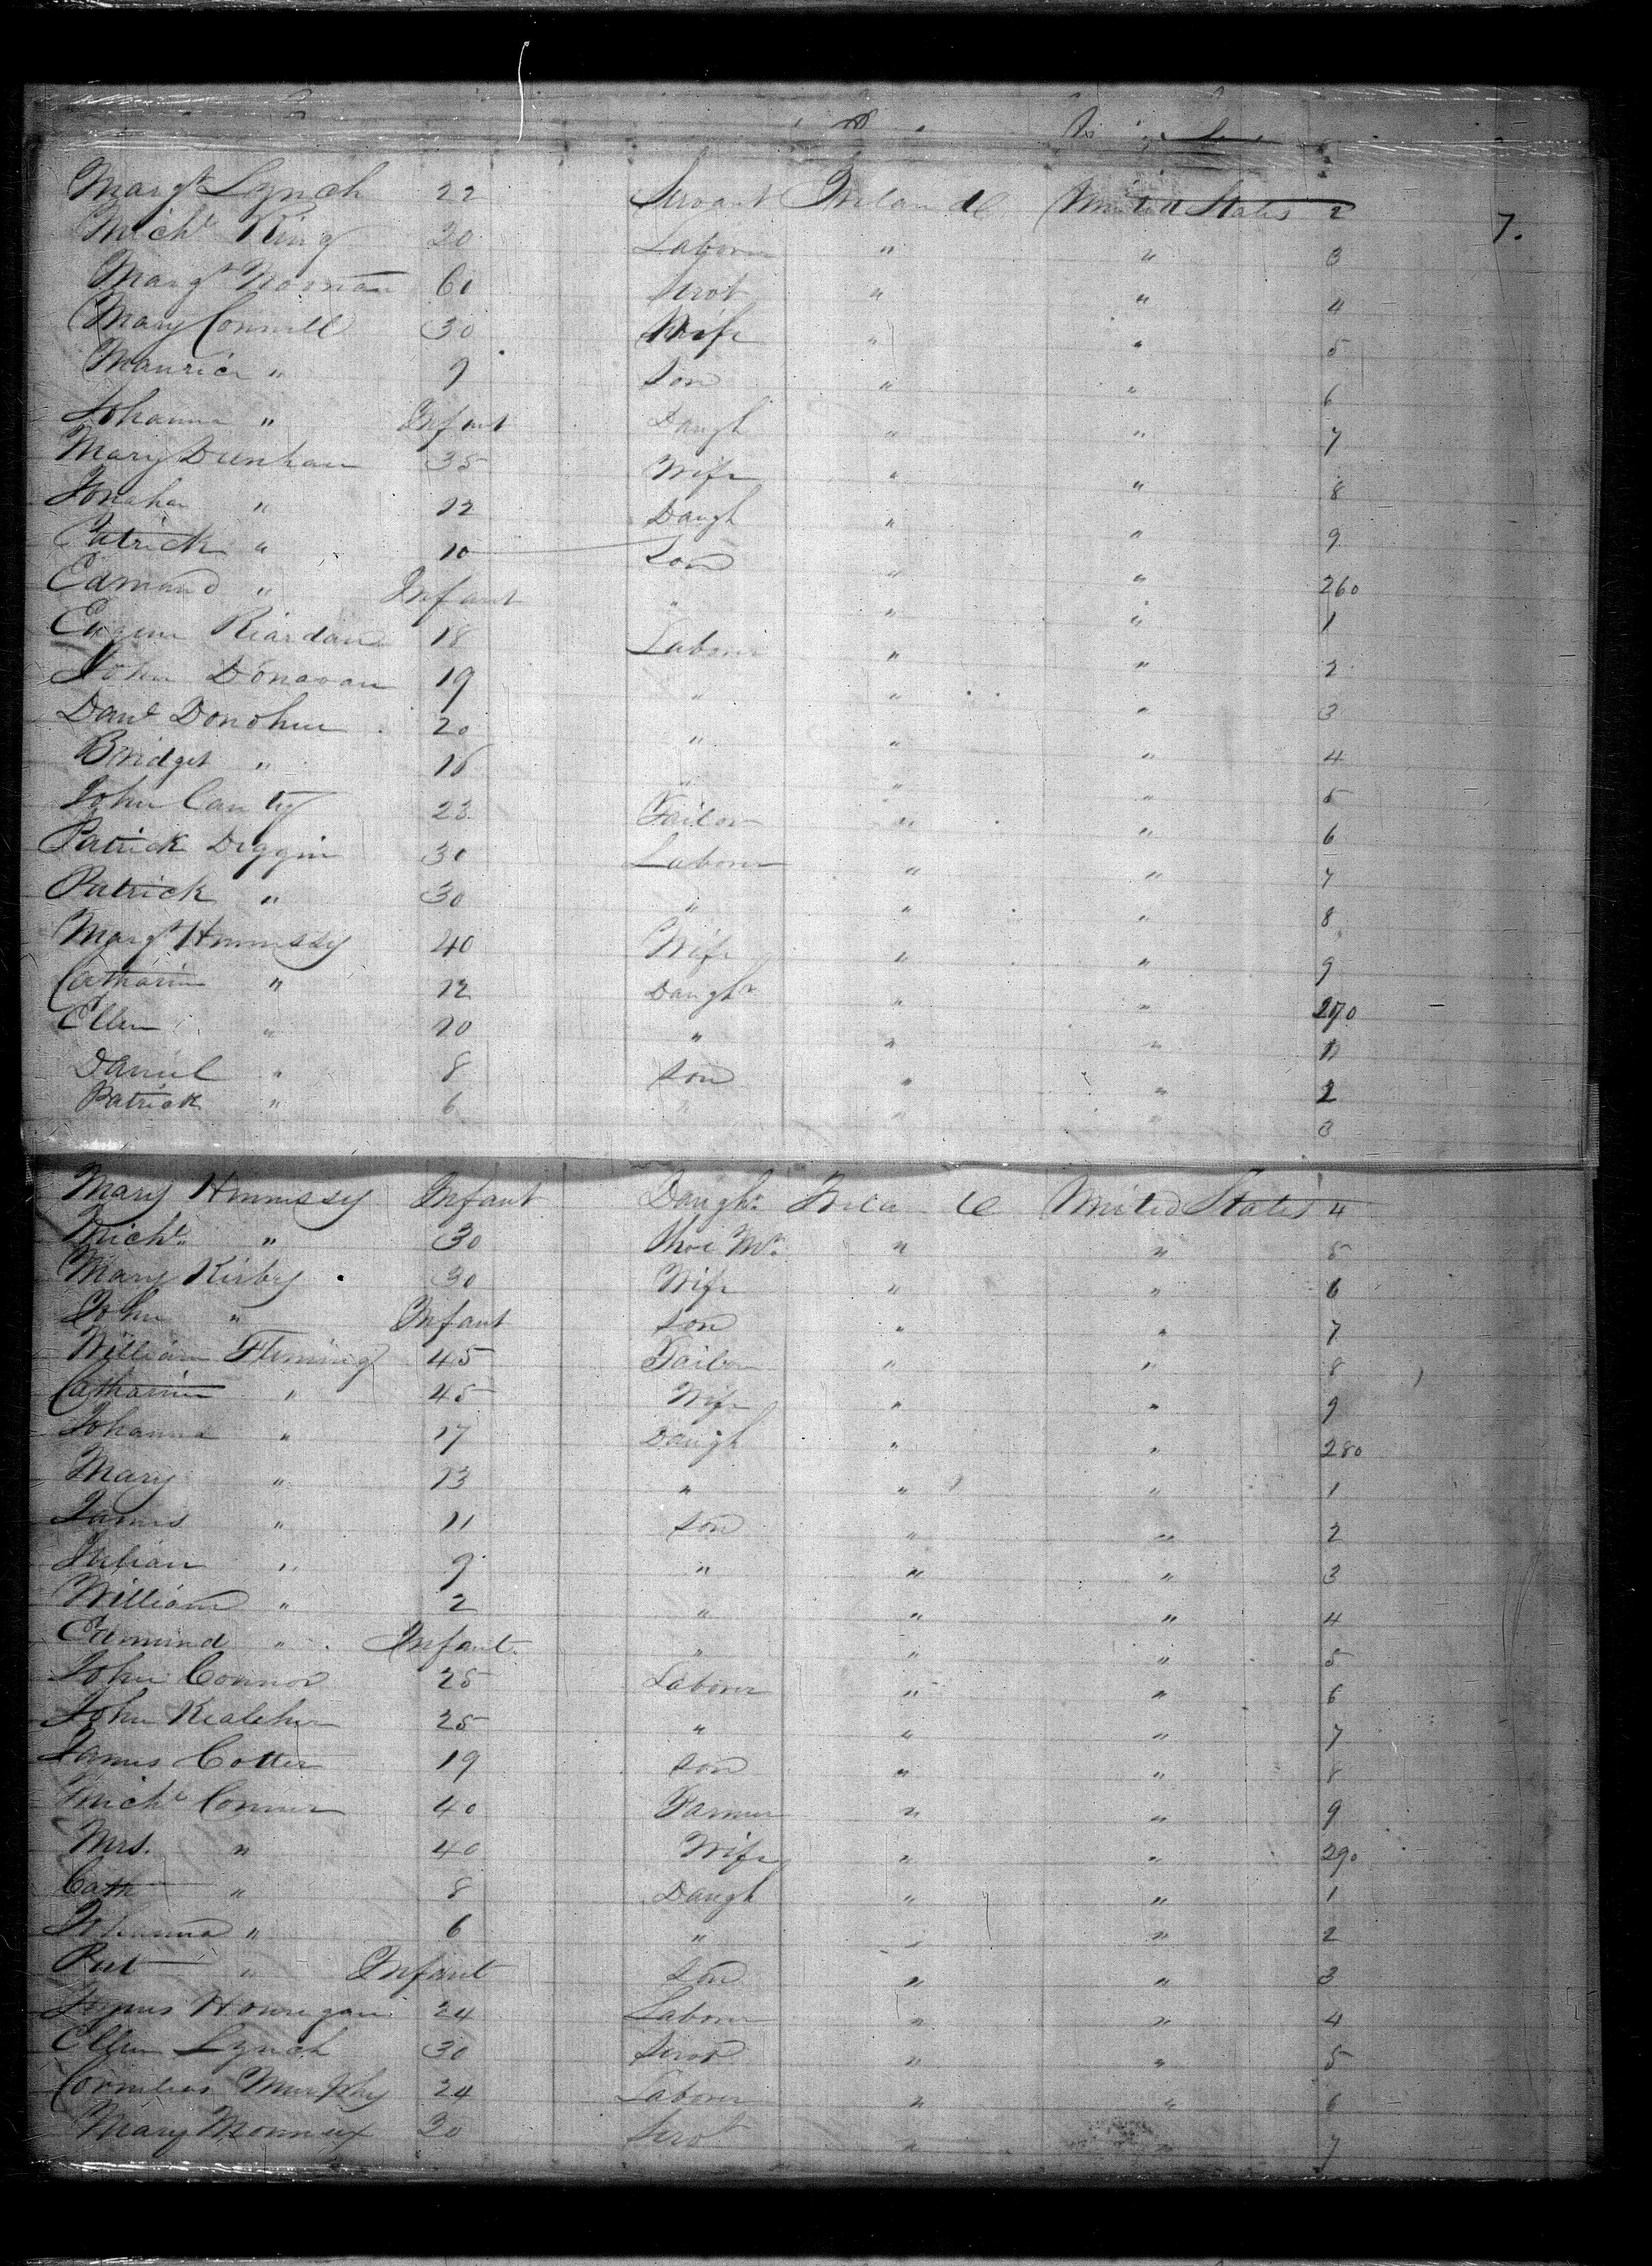 7.
Margt Lynch 22 Servant Ireland United States 2
Michl King 20 Laborer " " 3
Margt Noonan 60 Servt " " 4
Mary Connell 30 Wife " " 5
Maurice " 9 Son " " 6
Johanna " Infant Daugh " " 7
Mary Deenhan 35 Wife " " 8
" 12 Daugh " " 9
Patrick " 10 Son " " 260
Edmand " Infant " " " 1
Eugene Riardan 18 Laborer " " 2
John Donavan 19 " " " 3
Danl Donohue 20 " " " 4
Bridget " 16 " " " 5
John Canty 23 Tailor " " 6
Patrick Diggin 30 Laborer " " 7
Patrick " 30 " " " 8
Margt Hennessy 40 Wife " " 9
Catharine " 12 Daughr " " 270
Ellen " 10 " " " 1
Daniel " 8 Son " " 2
Patrick " 6 " " " 3
Mary Hennessy Infant Daughr Ireland United States 4
Michl " 30 Shoe Mr " " 5
Mary Kirby 30 Wife " " 6
John " Infant Son " " 7
William Fleming 45 Tailor " " 8
Catharine " 45 Wife " " 9
Johanna " 17 Daugh " " 280
Mary " 13 " " " 1
James " 11 Son " " 2
Julian " 9 " " " 3
William " 2 " " " 4
Edmund " Infant " " " 5
John Connor 25 Laborer " " 6
John Kealeher 25 " " " 7
James Cotter 19 Son " " 8
Michl Connor 40 Farmer " " 9
Mrs. " 40 Wife " " 290
Cath " 8 Daugh " " 1
Johanna " 6 " " " 2
Pat " Infant Son " " 3
James Hourigan 24 Laborer " " 4
Ellen Lynch 30 Servt " " 5
Cornelius Murphy 24 Laborer " " 6
Mary 20 Servt " " 7